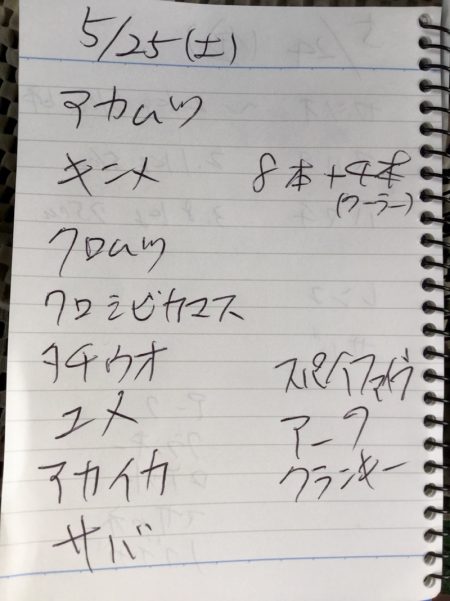 5/25(土)
アカムツ
キンメ 8本+4本
(クーラー)
クロムツ
クロシビカマス
タチウオ
ユメ アーク
アカイカ クランキー
サバ